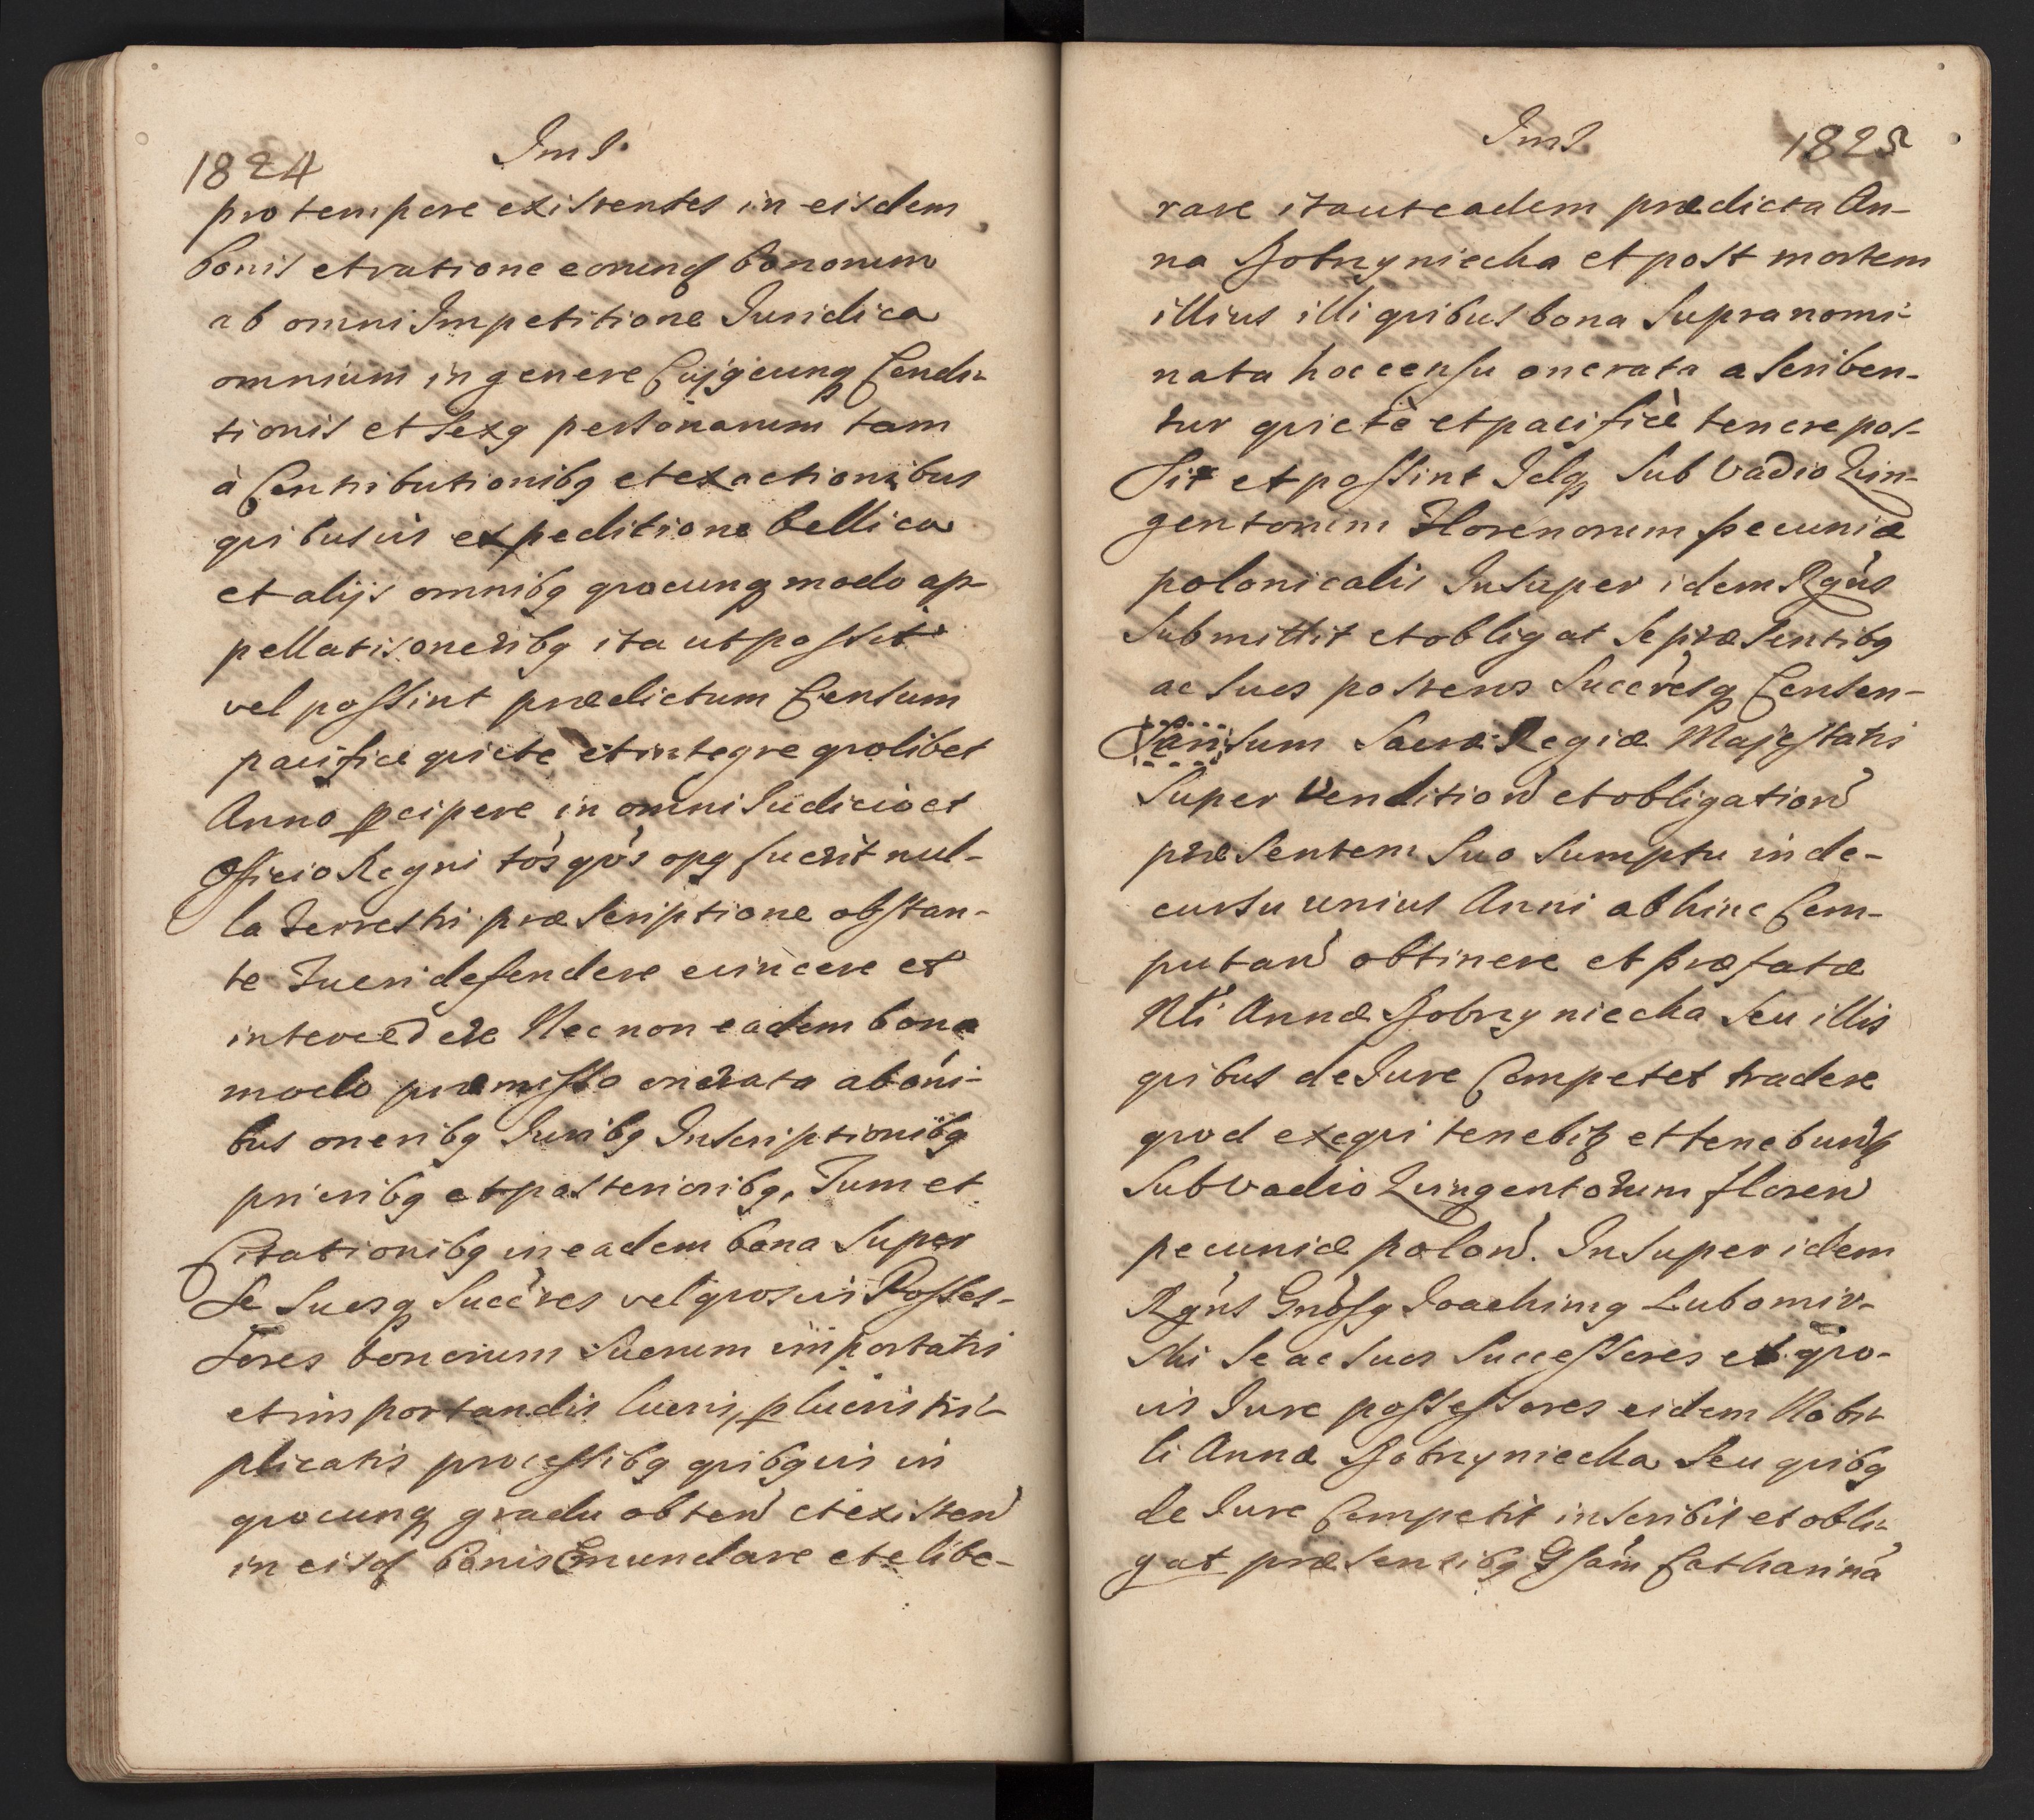 1824 Ins.
pro tempore existentes in eisdem
bonis et ratione eorundꝗ bonorum
ab omni Impetitione Iuridica
omnium in genere Cujꝗcunꝗ Condi-
tionis et sexꝗ personarum tam
à Contributionibꝗ et exactionibus
quibusvis expeditione bellica
et alijs omnibꝗ quocunꝗ modo ap-
pellatis oneribꝗ ita ut possit
vel possint prædictum Censum
pacifice quiete et integre quolibet
Anno pcipere in omni Iudicio et
Officio Regni tós quós opꝗ fuerit nul-
la Terrestri præscriptione obstan-
te Tueri defendere evincere et
intercedere Nec non eadem bona
modo præmisso onerata ab óni-
bus oneribꝗ Iuribꝗ Inscriptionibꝗ
prioribꝗ et posterioribꝗ, Tum et
Citationibꝗ in eadem bona super
se suosꝗ Succ̀res vel quosvis Posses-
sores bonorum suorum importatis
et importandis lucris, plucris tri-
plicatis processibꝗ quibꝗvis in
quocunꝗ gradu obteñ et existeñ
in eisd bonis Emundare et libe-
Ins. 1825
rare ita ut eadem prædicta An-
na Gobrzyniecka et post mortem
illius illi quibus bona supra nomi-
nata hoc censu onerata ascriben-
tur quietè et pacificè tenere pos-
sit et possint Idꝗ sub vadio Quin-
gentorum Florenorum pecuniæ
polonicalis Insuper idem Rgńs
submittit et obligat se præsentibꝗ
ac suos posteros Succ̀resꝗ Consen-
san sum Sacræ Regiæ Majestatis
super Venditioñ et obligatioñ
præsentem suo sumptu in de-
cursu unius Anni ab hinc Com-
putañ obtinere et præfatæ
Nli Annæ Gobrzyniecka seu illis
quibus de Iure Competet tradere
quod exequi tenebiꝗ et tenebunꝗ
Sub vadio Quingentorum floreñ
pecuniæ poloñ. Insuper idem
Rgńs Gnòsꝗ Ioachimꝗ Lubomir-
ski se ac suos successores et quo-
vis Iure possessores eidem Nobi-
li Annæ Gobrzyniecka seu quibꝗ
de Iure Competit inscribit et obli-
gat præsentibꝗ Gsám Cathariná